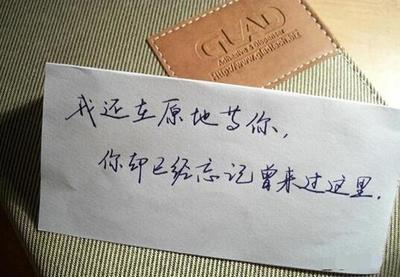 GLAD
Adhesive & Dispenser
我还在原地等你，
你却已经忘记曾来过这里.